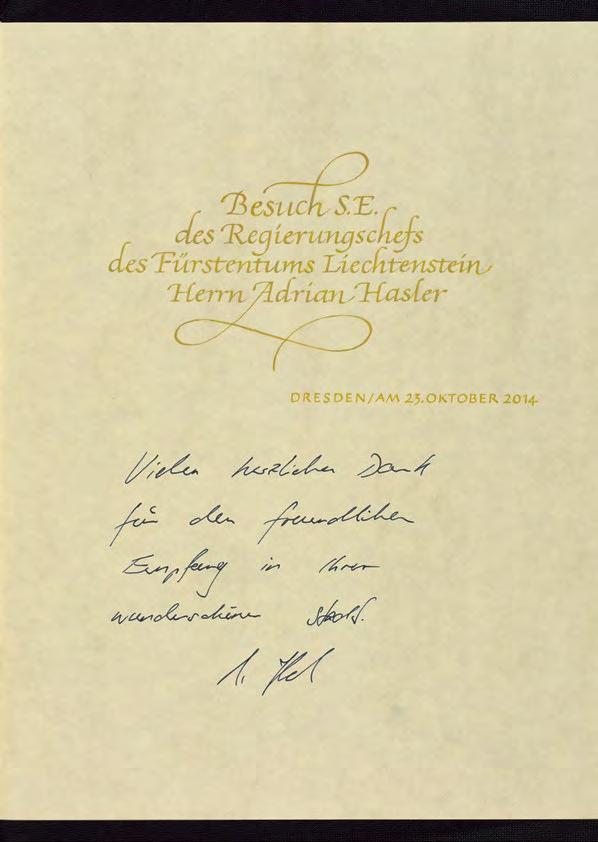 Besuch S.E.
des Regierungschefs
des Fürstentums Liechtenstein
Herrn Adrian Hasler
DRESDEN/AM 23.OKTOBER 2014
Vielen herzlichen Dank
für den freundlichen
Empfang in Ihrer
wunderschönen Stadt.